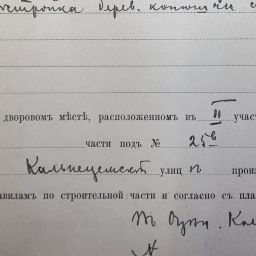 стройка дерев. конюшни с
дворовомъ мѣстѣ, расположенномъ въ II участ
части подъ № 25в
Кальнецемской улицѣ произ
авилам по строительной части и согласно съ пла